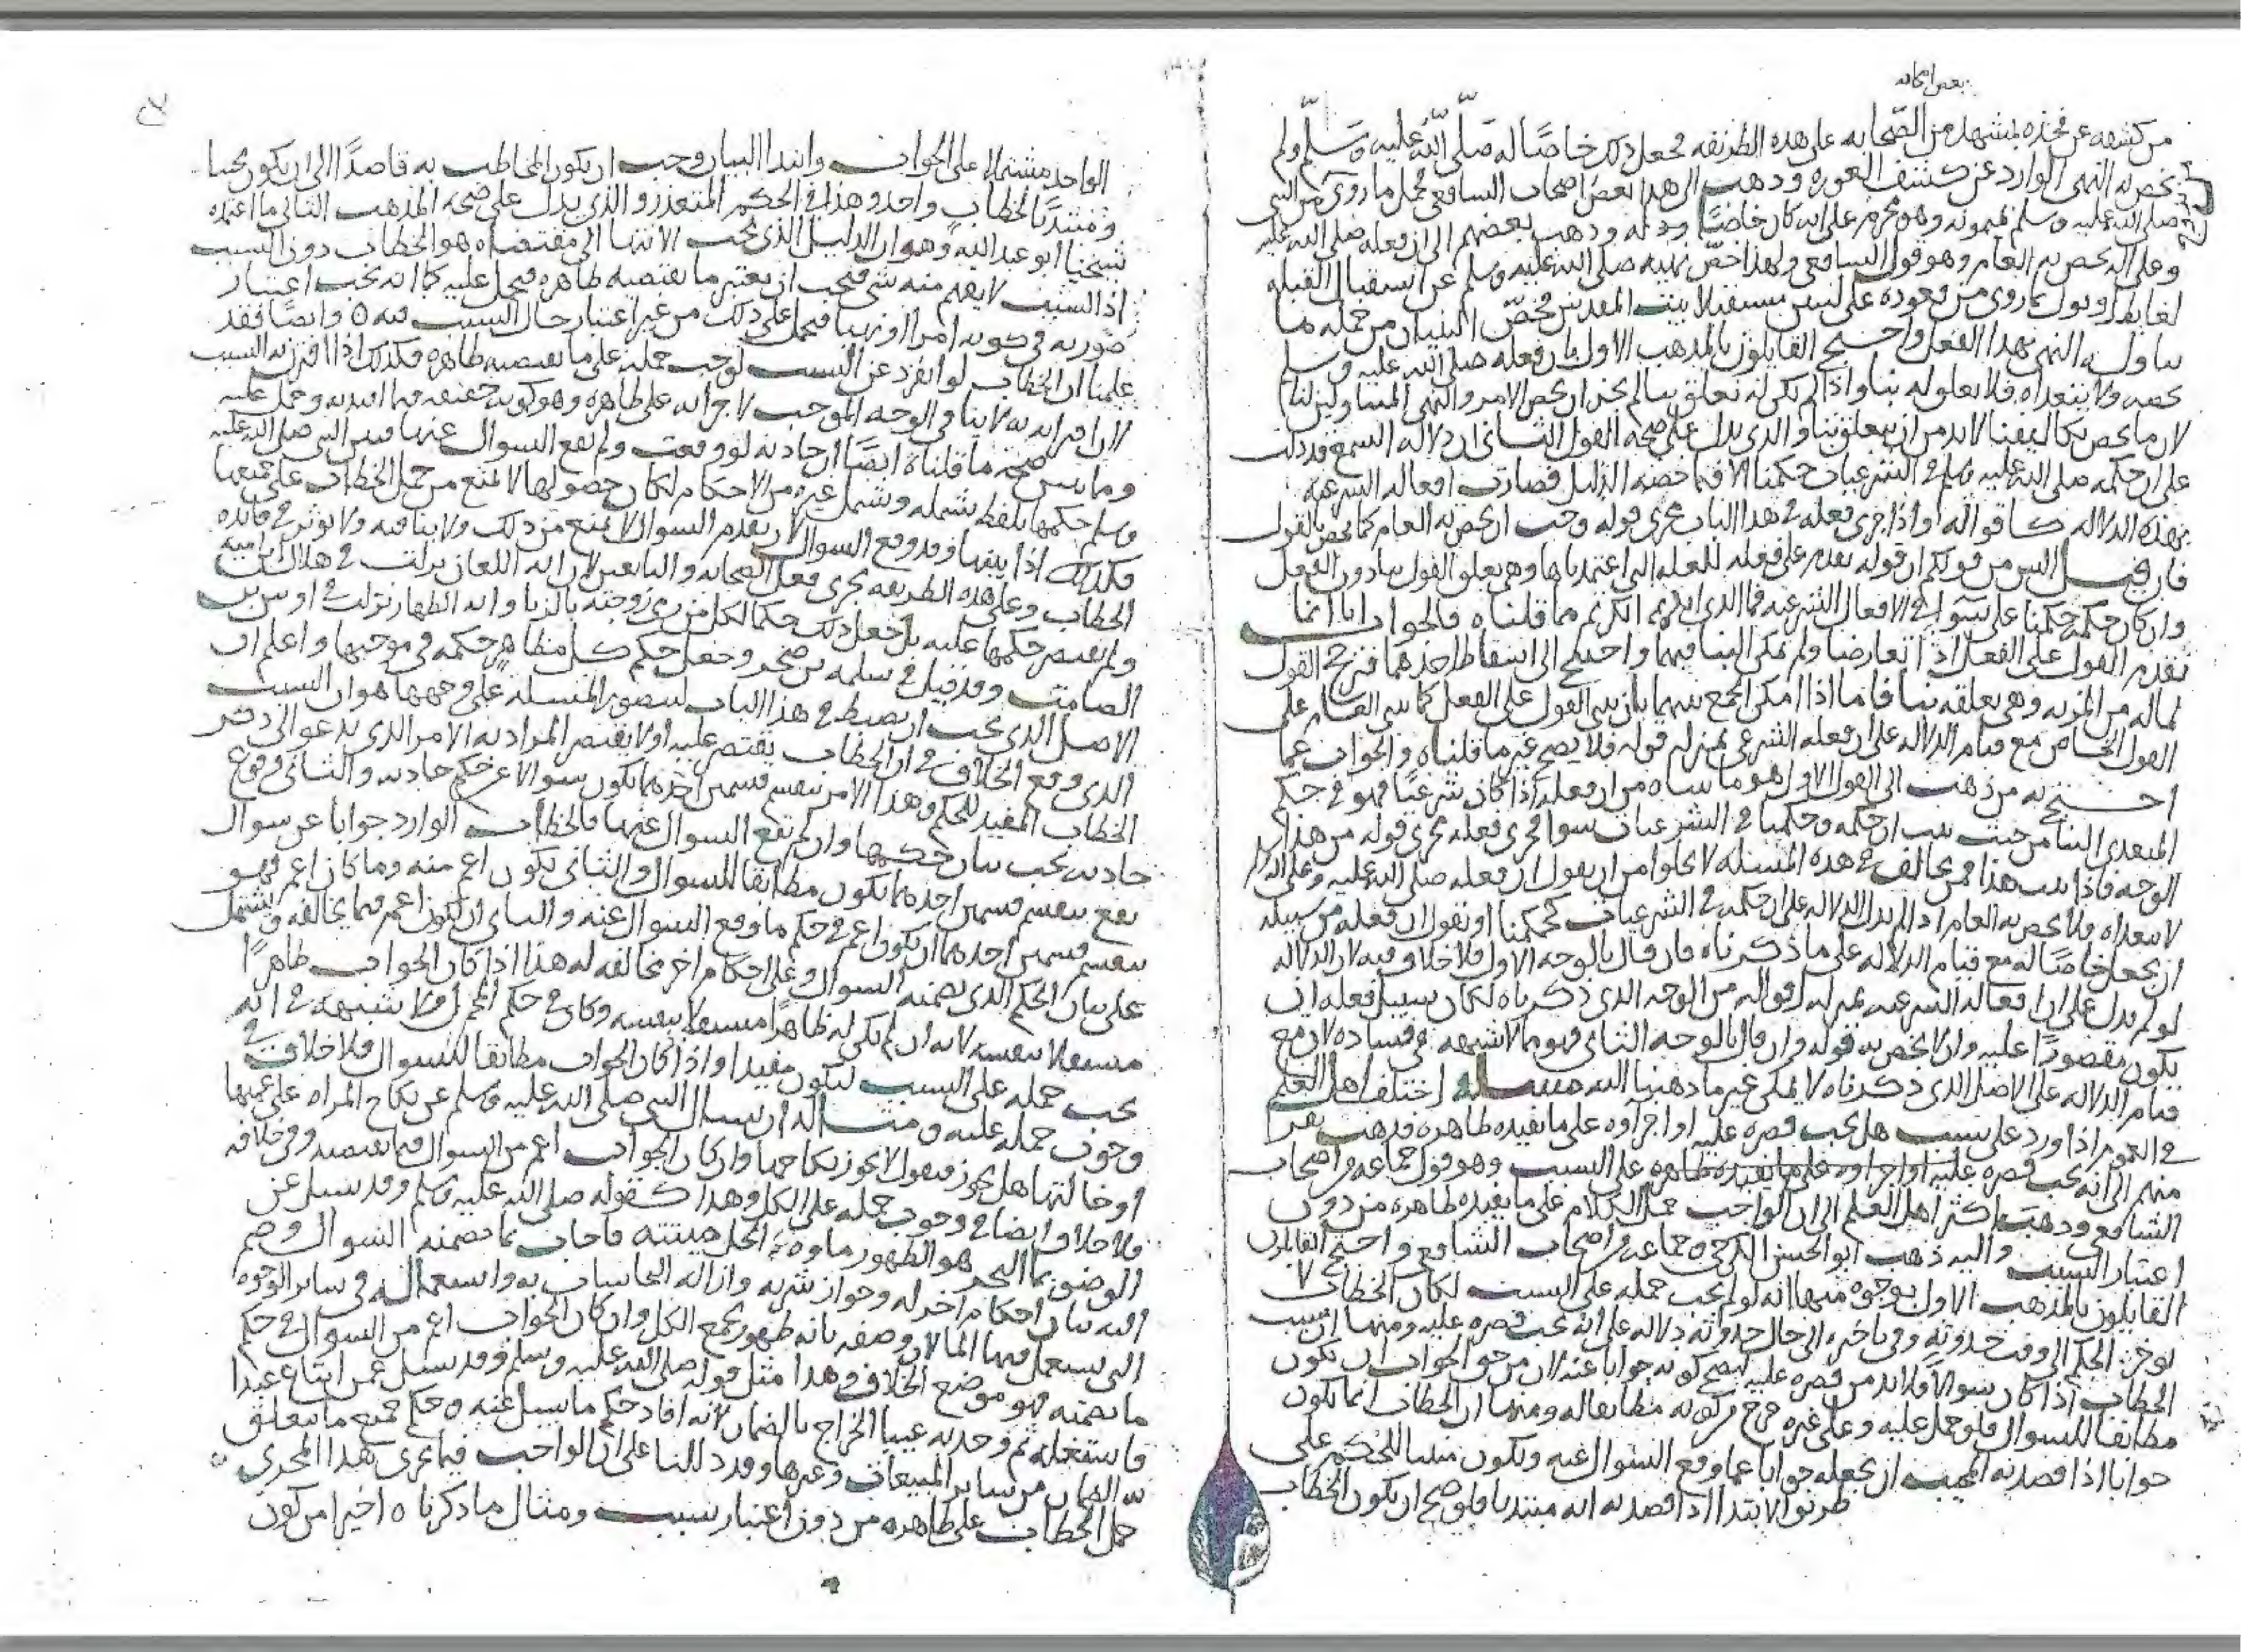 بعض امكانه
من كشفه عن فخذه بمشهد من الصحابه على هذه الطريقه فجعل ذلك خاصًا له صلى الله عليه وسلم ولم
يخص به النهى الوارد عن كشف العوره وذهب الى هذا بعض اصحاب الشافعى فحمل ما روى من النبى
صلى الله عليه وسلم بميمونه وهو محرم على انه كان خاصًا وذهب بعضهم الى ان فعله صلى الله عليه
وعلى اله يخص به العام وهو قول الشافعى ولهذا خص نهيه صلى الله عليه وسلم عن استقبال القبله
لغايط او بول بما روى من قعوده على لبنتين مستقبلا بيت المقدس فخصّ البنيان من جمله ما
تناوله النهى بهذا الفعل واحتج القايلون بالمذهب الاول بان فعله صلى الله عليه وسلم
يخصه ولا يتعداه فلا تعلق له بنا واذا لم يكن له تعلق بنا لم يجز ان يخص الامر والنهى المتناولين لنا
لان ما يخص تكاليفنا لابد من ان يتعلق بنا والذى يدل على صحه القول الثانى ان دلاله السمع قد دلت
على ان حكمه صلى الله عليه وسلم فى الشرعيات حكمنا الا فيما خصه الدليل فصارت افعاله الشرعيه
بهذه الدلاله كاقواله واذا جرى فعله فى هذا الباب مجرى قوله وجب ان يخص به العام كما يخص بالقول
فان قيل اليس من قولكم ان قوله يقدم على فعله للعله التى اعتمدناها وهى تعلق القول بنا دون الفعل
وان كان حكمه حكمنا على سوا فى الافعال الشرعيه فما الذى انكرتم مما قلناه فالجواب انا انما
نقدم القول على الفعل اذا تعارضا ولم يمكن البنا فيهما واحتيج الى اسقاط احدهما فنرجح القول
لماله من المزيه وهى تعلقه بنا فاما اذا امكن الجمع بينهما بان يبنى القول على الفعل كما يبنى العام على
القول الخاص مع قيام الدلاله على ان فعله الشرعى بمنزله قوله فلا يصح غير ما قلناه والجواب عما
احتج به من ذهب الى القول الاول هو ما بيناه من ان فعله اذا كان شرعيًا فهو فى حكم
المتعدى الينا من حيث ثبت ان حكمه وحكمنا فى الشرعيات سوا فجرى فعله مجرى قوله من هذا
الوجه فاذا ثبت هذا فمن يخالف فى هذه المسئله لا يخلوا من ان يقول ان فعله صلى الله عليه وعلى اله
لا يتعداه ولا يخص به العام اذ لم يدل الدلاله على ان حكمه فى الشرعيات كحكمنا او يقول ان فعله من سبيله
ان يجعل خاصًا له مع قيام الدلاله على ما ذكرناه فان قال بالوجه الاول فلا خلاف فيه لان الدلاله
لو لم تدل على ان افعاله الشرعيه بمنزله اقواله من الوجه الذى ذكرناه لكان سبيل فعله ان
يكون مقصورًا عليه وان لا يخص به قوله وان قال بالوجه الثانى فهو مما لا شبهه فى فساده لان مع
قيام الدلاله على الاصل الذى ذكرناه لا يمكن غير ما ذهبنا اليه مسئله اختلف اهل العلم
فى العموم اذا ورد على سبب هل يجب قصره عليه او اجراوه على ما يفيده ظاهره فذهب نفر
منهم الى انه يجب قصره عليه او اجراوه على ما يفيده ظاهره على السبب وهو قول جماعه من اصحاب
الشافعى وذهب اكثر اهل العلم الى ان الواجب حمل الكلام على ما يفيده ظاهره من دون
اعتبار السبب واليه ذهب ابو الحسن الكرخى وجماعه من اصحاب الشافعى واحتج القايلون
القايلون بالمذهب الاول بوجوه منها انه لو لم يجب حمله على السبب لكان الخطاب لا
يوخر الحكم الى وقت حدوثه وفى تاخره الى حال حدوثه دلاله على انه يجب قصره عليه ومنها ان سبب
الخطاب اذا كان سوالا فلابد من قصره عليه ليصح كونه جوابا عنه لان من حق الجواب ان يكون
مطابقا للسوال فلو حمل عليه وعلى غيره خرج من كونه مطابقا له ومنها ان الخطاب انما يكون
جوابا اذا قصد به المجيب ان يجعله جوابا عما وقع السوال عنه ويكون مبينا للحكم على
طريق الابتدا اذا قصد به انه مبتدبا فلو صح ان يكون الخطاب
الواحد مشتملا على الجواب وابتدا البيان وجب ان يكون المخاطب به قاصدًا الى ان يكون مجيبا
ومبتديًا بخطاب واحد وهذا فى الحكم المتعذر والذى يدل على صحه المذهب الثانى ما اعتمده
شيخنا ابو عبد الله وهو ان الدليل الذى يجب الانتها الى مقتضاه هو الخطاب دون السبب
اذ السبب لا يفهم منه شى فيجب ان يعتبر ما يقتضيه ظاهره فيحمل عليه كما انه يجب اعتبار
صورته فى كونه امرا او نهيا فيحمل على ذلك من غير اعتبار حال السبب فيه وايضًا فقد
علمنا ان الخطاب لو انفرد عن السبب لوجب حمله على ما يقتضيه ظاهره فكذلك اذا اقترن به السبب
لان اقترانه به لا ينافى الوجه الموجب لاجرايه على ظاهره وهو كونه حقيقه فيما افيد به وحمل عليه
ومما يبين صحه ما قلناه ايضًا ان حادثه لو وقعت ولم يقع السوال عنها فبين النبى صلى الله عليه
وسلم حكمها بلفظ يشمله ويشمل غيره من الاحكام لكان حصولها لا يمنع من حمل الخطاب على جميعها
فكذلك اذا بينها وقد وقع السوال لان تقدم السوال لا يمنع من ذلك ولا ينافيه ولا يوثر فى فايده
الخطاب وعلى هذه الطريقه جرى فعل الصحابه والتابعين لان ايه اللعان نزلت فى هلال بن اميه
ولم يقتصر حكمها عليه بل جعل ذلك حكما لكل من رمى زوجته بالزنا وايه الظهار نزلت فى اوس بن
الصامت وقد قيل فى سلمه بن صخر وجعل حكم كل مظاهر حكمه فى موجبها واعلم ان
الاصل الذى يجب ان يضبط فى هذا الباب لتصور المسئله على وجهها هو ان السبب
الذى وقع الخلاف فى ان الخطاب يقتصر عليه او لا يقتصر المراد به الامر الذى يدعو الى ذكر
الخطاب المفيد للحكم وهذا الامر ينقسم قسمين احدهما يكون سوالا عن حكم حادثه والثانى وقوع
حادثه يجب بيان حكمها وان لم يقع السوال عنها فالخطاب الوارد جوابا عن سوال
يقع ينقسم قسمين احدهما يكون مطابقا للسوال والثانى يكون اعم منه وما كان اعم فهو
ينقسم قسمين احدهما ان يكون اعم فى حكم ما وقع السوال عنه والثانى ان يكون اعم فيما يخالفه ويشتمل
على بيان الحكم الذى تضمنه السوال وعلى احكام اخر مخالفه له هذا اذا كان الجواب ظاهرًا
مستقلا بنفسه لانه ان لم يكن له ظاهرًا مستقلا بنفسه وكان فى حكم المجمل فلا شبهه فى انه
يجب حمله على السبب ليكون مفيدا واذا كان الجواب مطابقا للسوال فلا خلاف فى
وجوب حمله عليه ومثاله ان يسال النبى صلى الله عليه وسلم عن نكاح المراه على عمتها
او خالتها هل يجوز فيقول لا يجوز نكاحها وان كان الجواب اعم من السوال فيما يقتضيه وفى خلافه
فلا خلاف ايضا فى وجوب حمله على الكل وهذا كقوله صلى الله عليه وسلم وقد سيل عن
الوضو بما البحر هو الطهور ماوه الحل ميتته فاجاب بما تضمنه السوال وضم
اليه بيان احكام اخر له وجواز شربه وازاله النجاسات به واستعماله فى ساير الوجوه
التى يستعمل فيها الما لان وصفه بانه طهور يجمع الكل وان كان الجواب اعم من السوال فى حكم
ما تضمنه فهو موضع الخلاف وهذا مثل قوله صلى الله عليه وسلم وقد سيل عمن ابتاع عبدا
فاستغله ثم وجد به عيبا الخراج بالضمان لانه افاد حكم ما سيل عنه وحكم جميع ما يتعلق
به الضمان من ساير المبيعات وغيرها وقد دللنا على ان الواجب فيما يجرى هذا المجرى
حمل الخطاب على ظاهره من دون اعتبار سبب ومثال ما ذكرناه اخيرا من كون